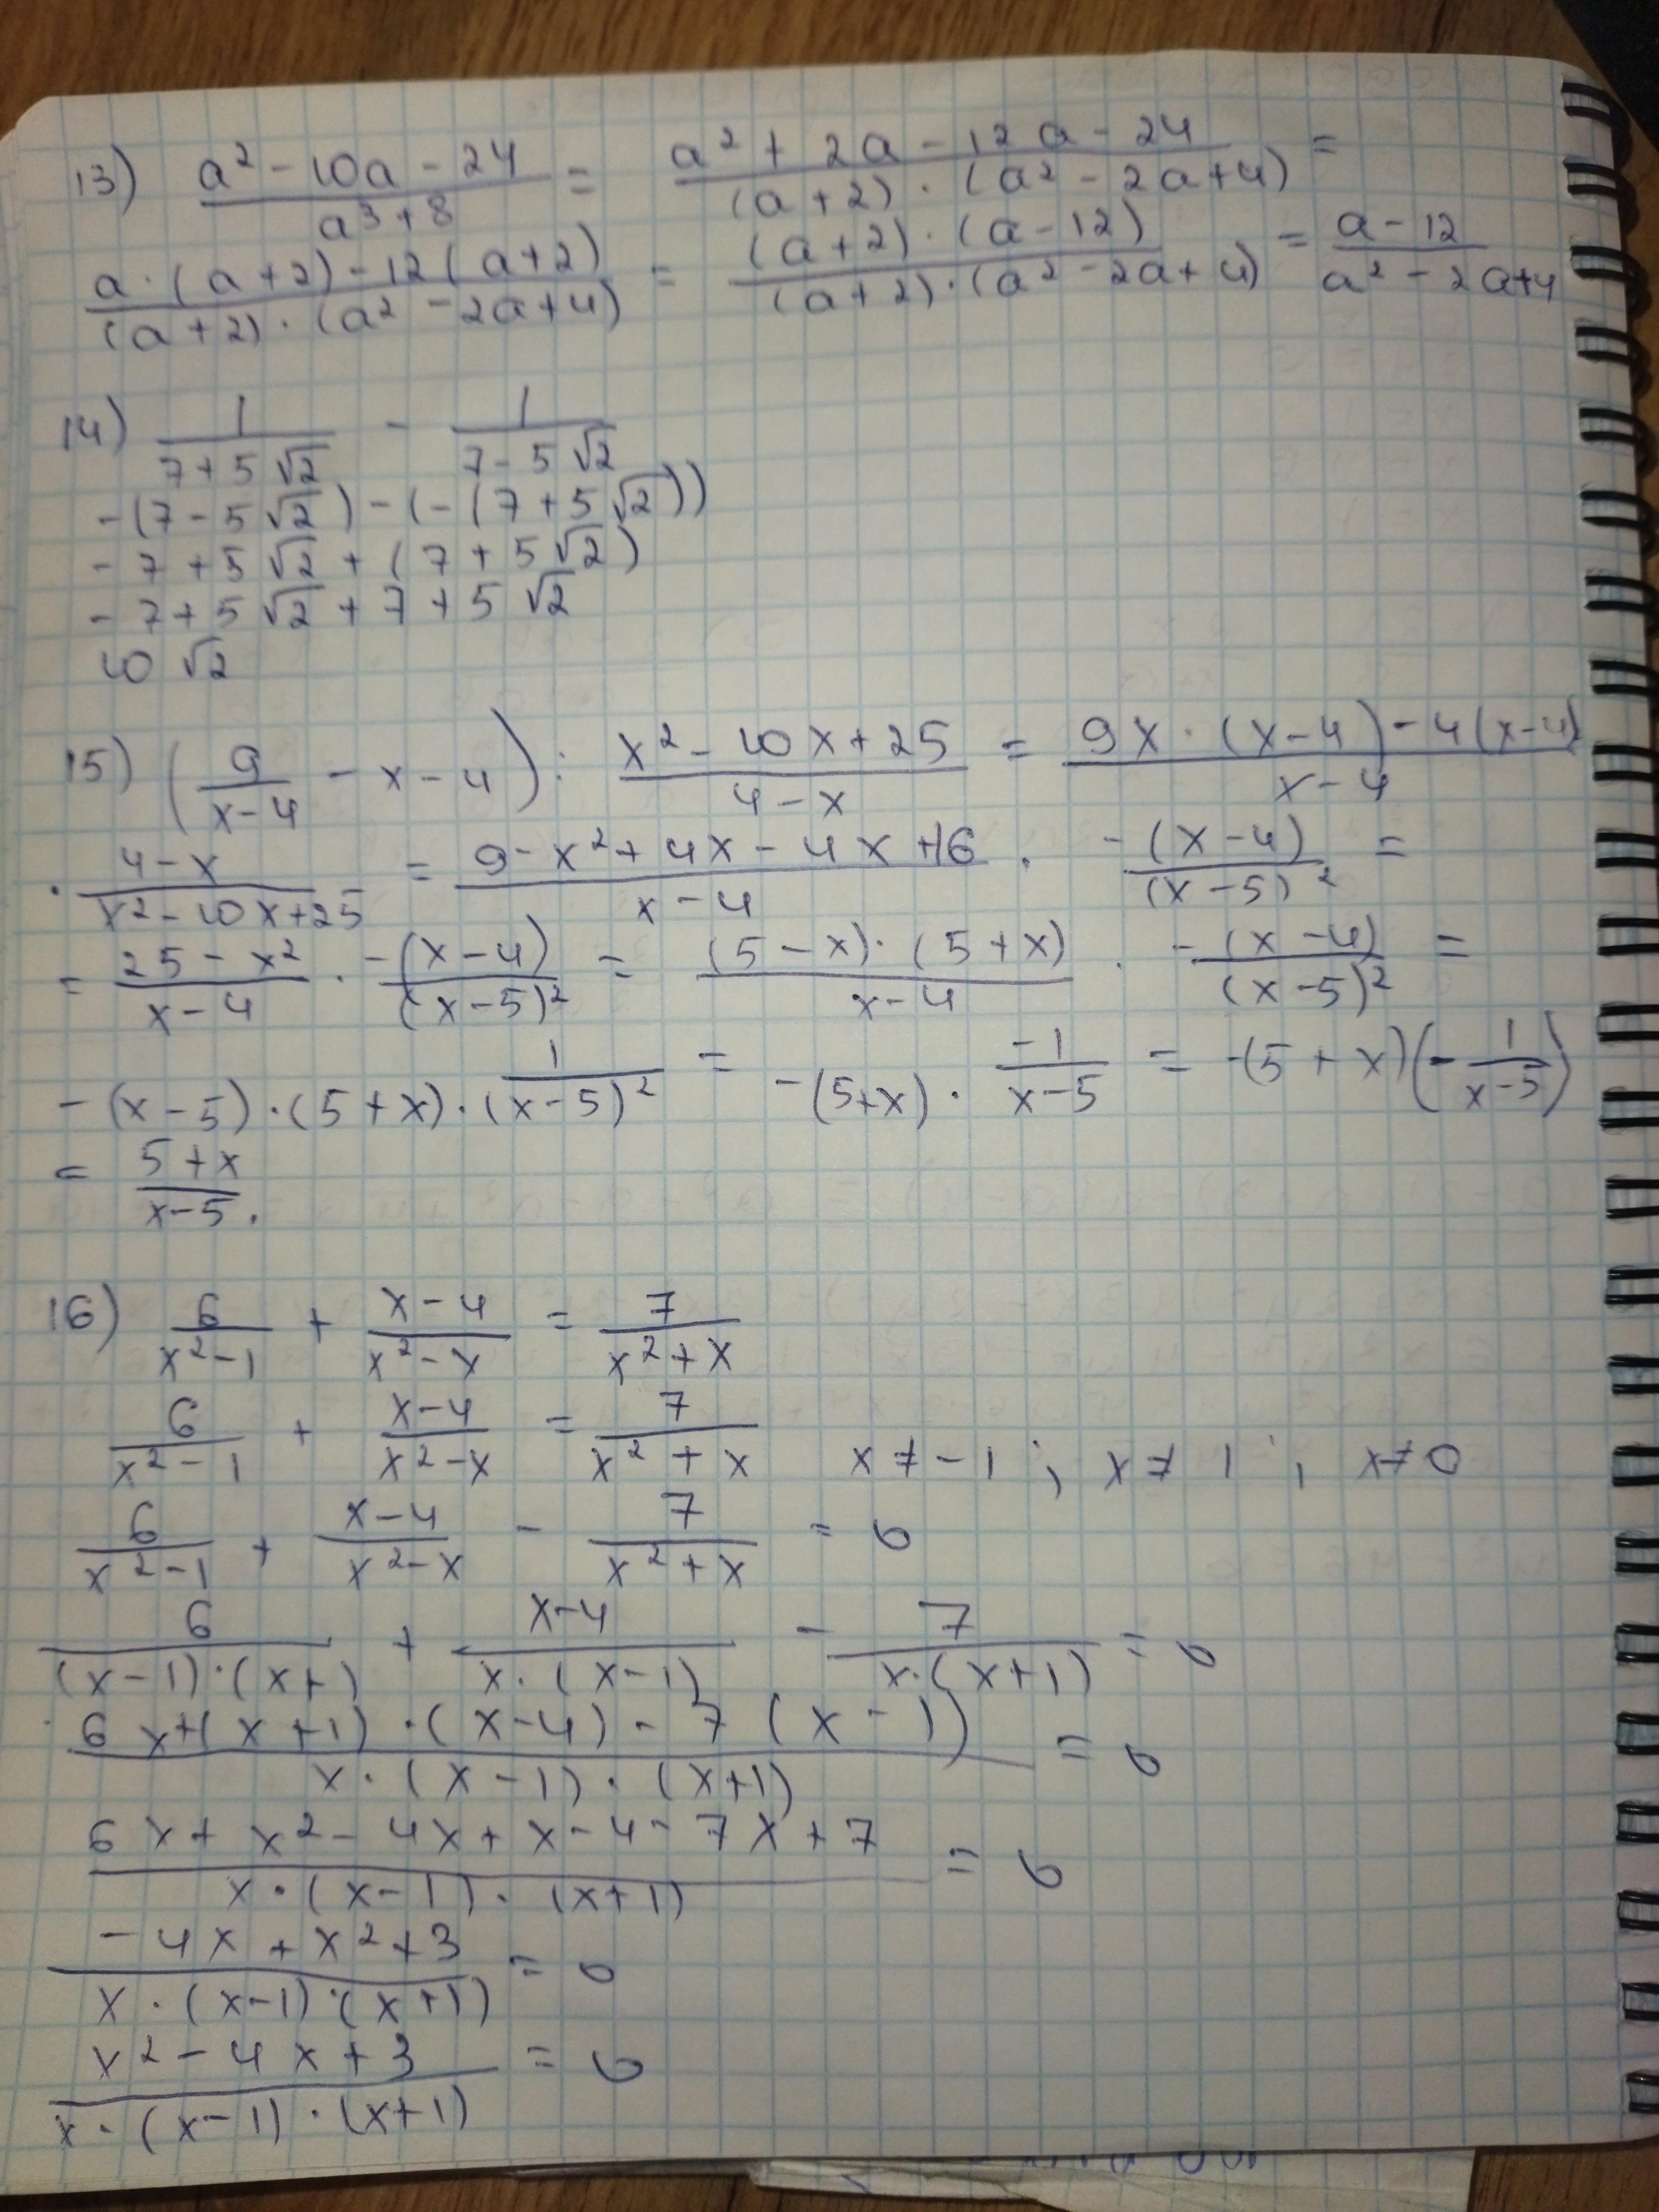 13) (a² - 10a - 24)/(a³ + 8) = (a² + 2a - 12a - 24)/((a + 2) · (a² - 2a + 4)) =
(a · (a + 2) - 12(a + 2))/((a + 2) · (a² - 2a + 4)) = ((a + 2) · (a - 12))/((a + 2) · (a² - 2a + 4)) = (a - 12)/(a² - 2a + 4)
14) 1/(7 + 5√2) - 1/(7 - 5√2)
-(7 - 5√2) - (-(7 + 5√2))
- 7 + 5√2 + (7 + 5√2)
- 7 + 5√2 + 7 + 5√2
10√2
15) (9/(x - 4) - x - 4) : (x² - 10x + 25)/(4 - x) = (9x · (x - 4) - 4(x - 4))/(x - 4)
· (4 - x)/(x² - 10x + 25) = (9 - x² + 4x - 4x + 16)/(x - 4) · -(x - 4)/(x - 5)² =
= (25 - x²)/(x - 4) · -(x - 4)/(x - 5)² = ((5 - x) · (5 + x))/(x - 4) · -(x - 4)/(x - 5)² =
-(x - 5) · (5 + x) · 1/(x - 5)² = -(5 + x) · -1/(x - 5) = -(5 + x)(-1/(x - 5))
= (5 + x)/(x - 5).
16) 6/(x² - 1) + (x - 4)/(x² - x) = 7/(x² + x)
6/(x² - 1) + (x - 4)/(x² - x) = 7/(x² + x) x ≠ -1 ; x ≠ 1 ; x ≠ 0
6/(x² - 1) + (x - 4)/(x² - x) - 7/(x² + x) = 0
6/((x - 1) · (x + )) + (x - 4)/(x · (x - 1)) - 7/(x · (x + 1)) = 0
(6x + (x + 1) · (x - 4) - 7(x - 1))/(x · (x - 1) · (x + 1)) = 0
(6x + x² - 4x + x - 4 - 7x + 7)/(x · (x - 1) · (x + 1)) = 0
(-4x + x² + 3)/(x · (x - 1) · (x + 1)) = 0
(x² - 4x + 3)/(x · (x - 1) · (x + 1)) = 0